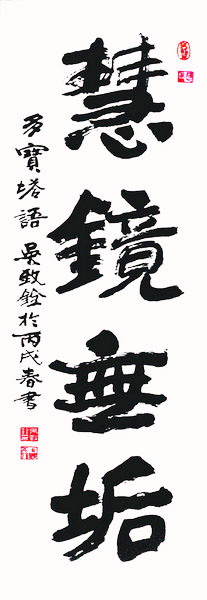 慧鏡無垢
多寶塔語 吳致銓於丙戌春書